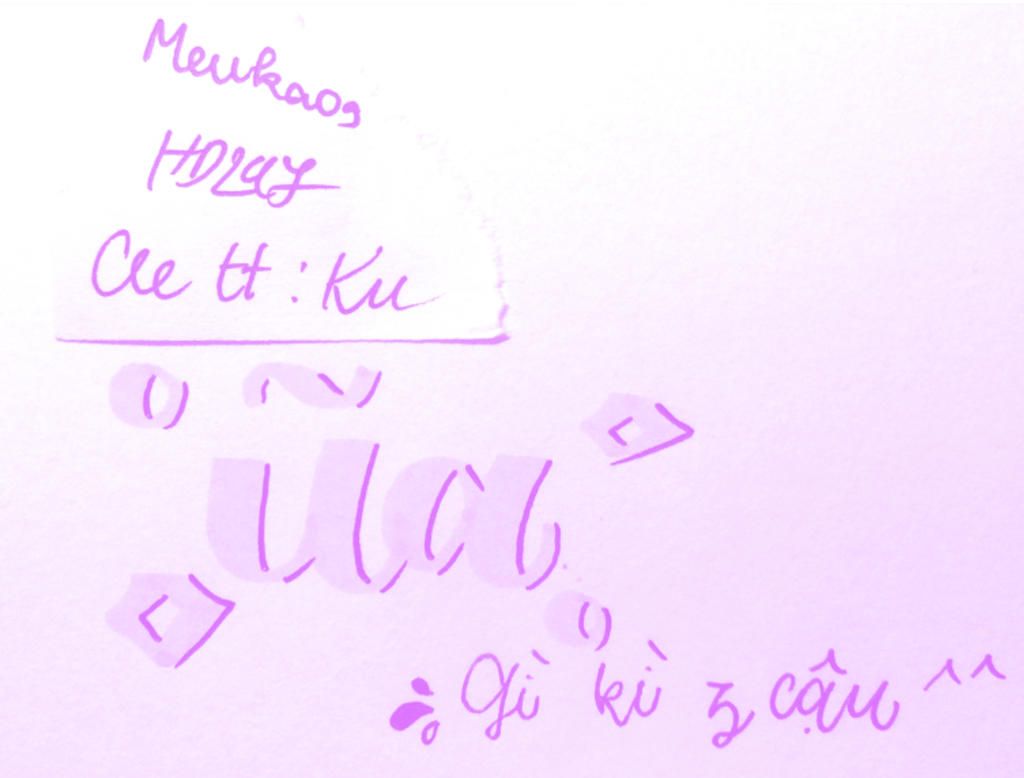 Meukaog
HDz
Cle tt : Ku
Ũa
Gì kì z cậu ^^